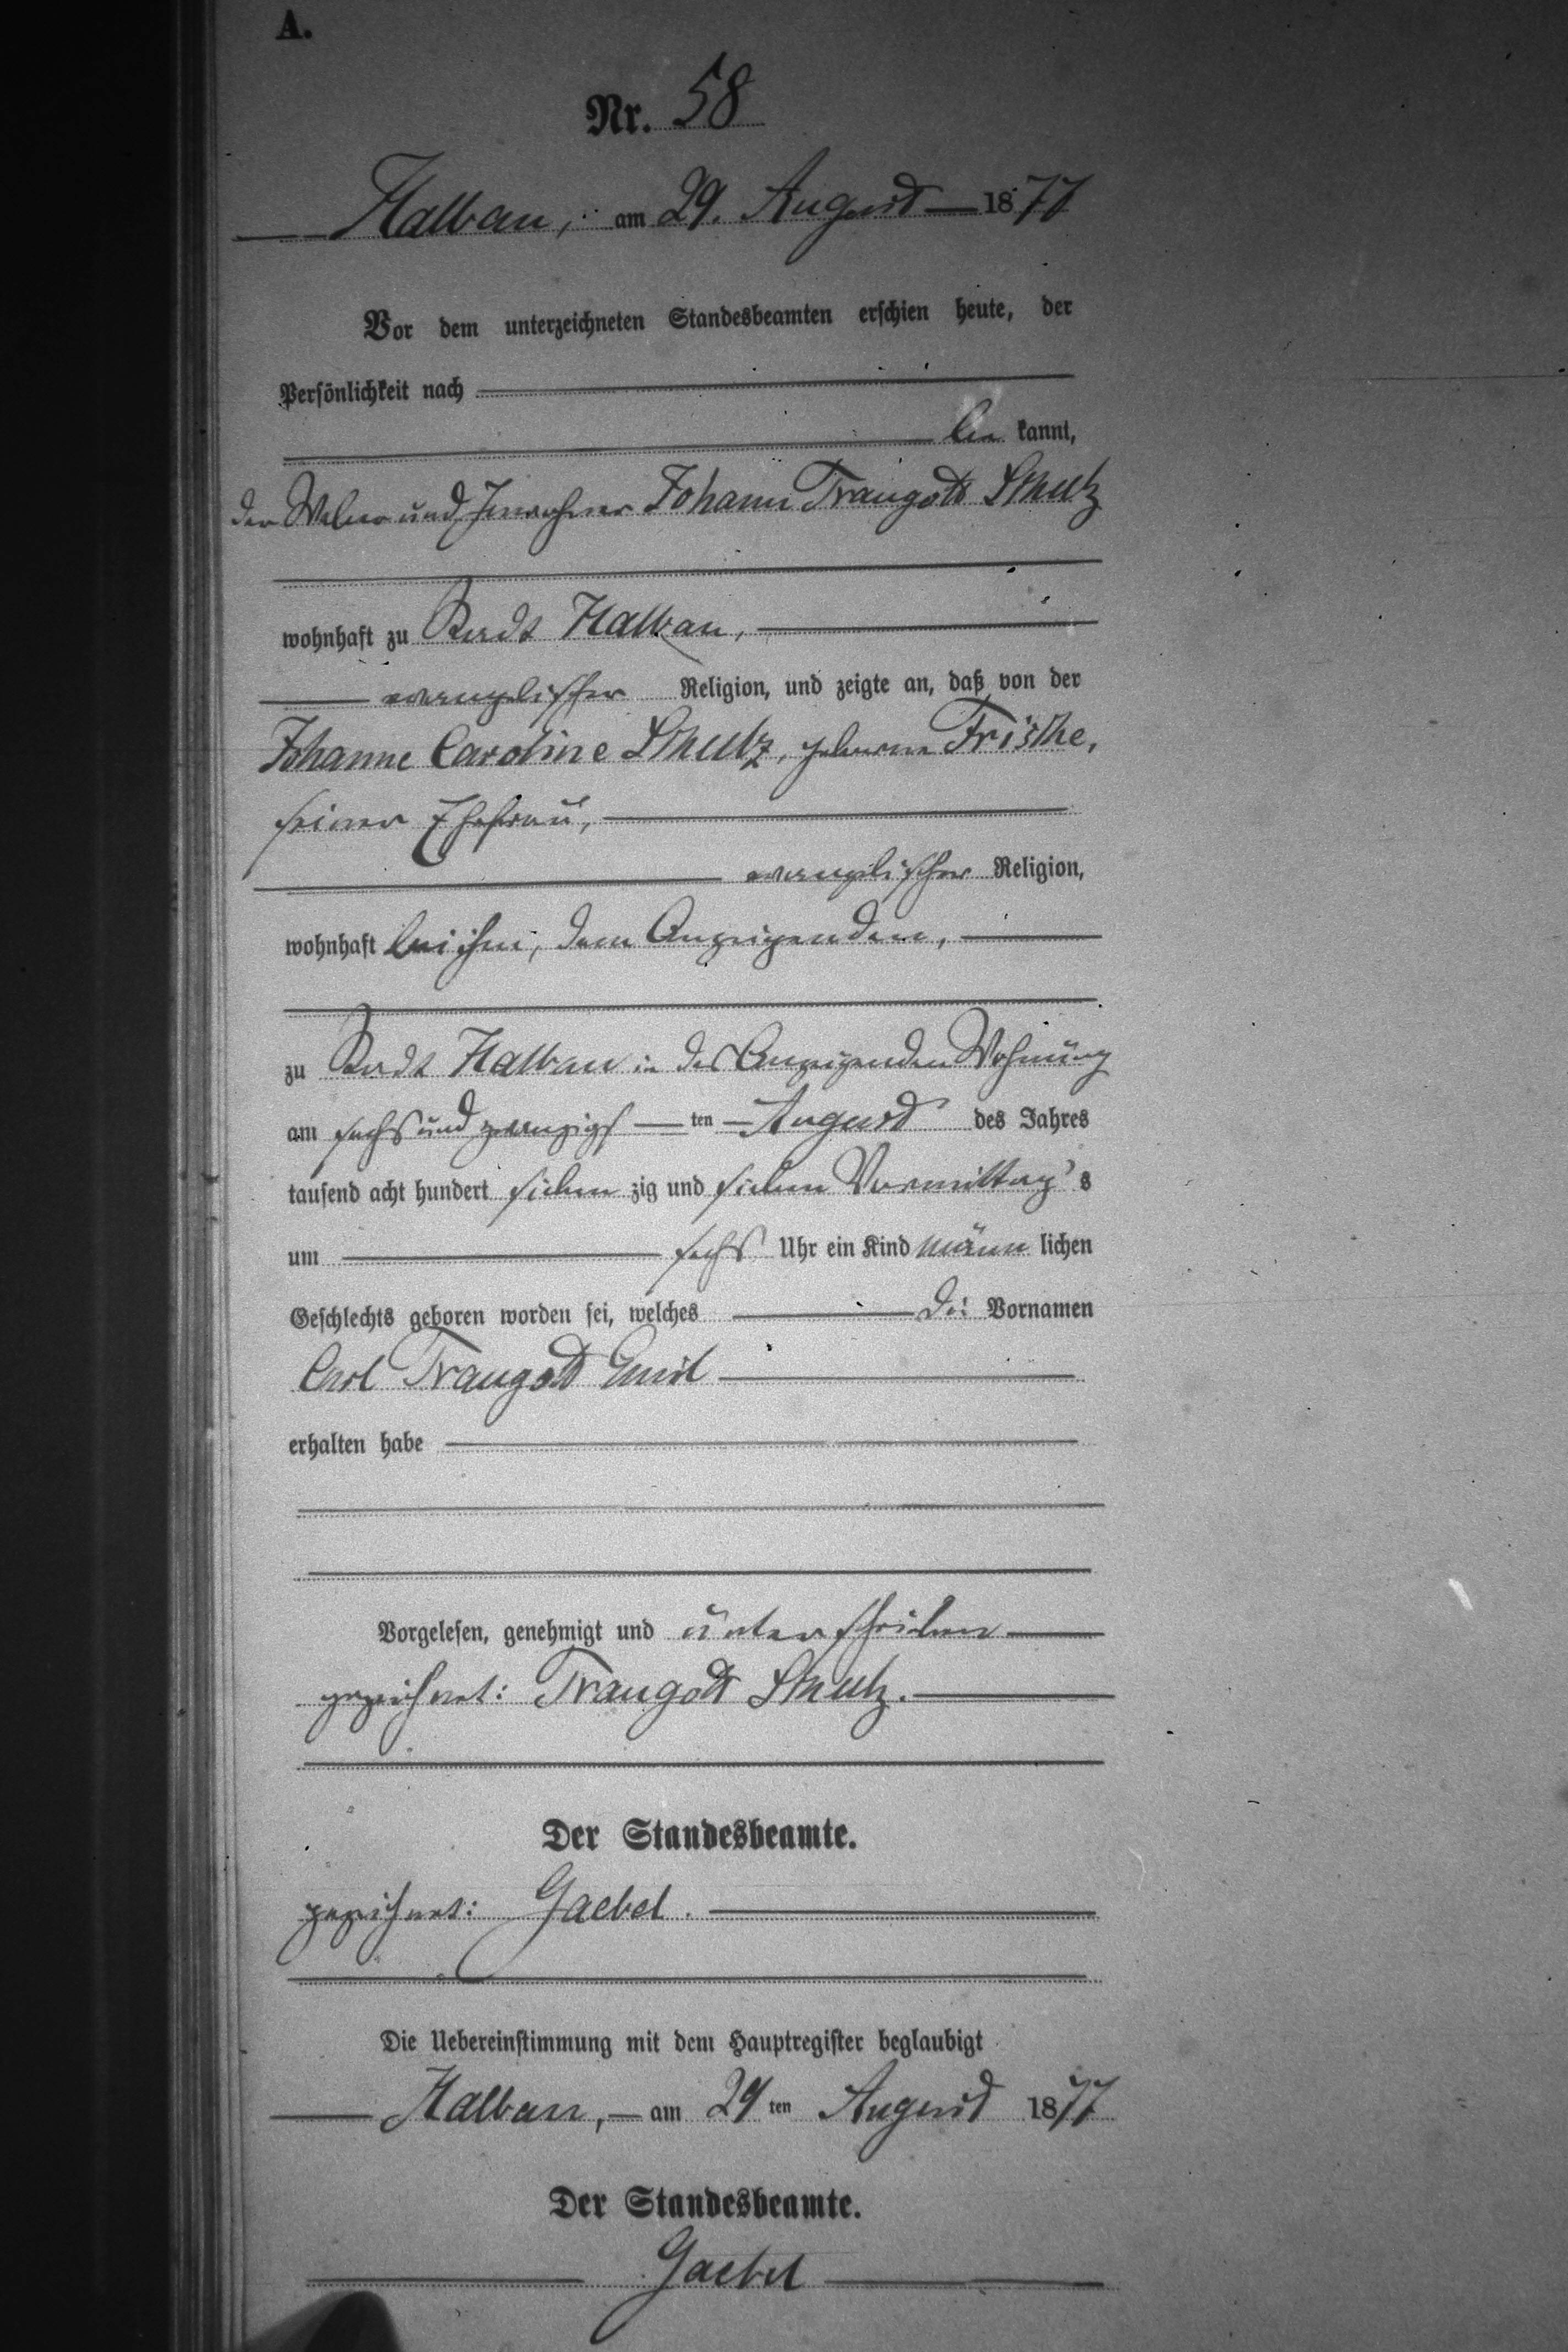 A.
Nr. 58
Halbau, am 29. August 1877
Vor dem unterzeichneten Standesbeamten erschien heute, der
Persönlichkeit nach
be kannt,
der Weber und Inwohner Johann Traugott Schulz
wohnhaft zu Stadt Halbau,
evangelischer Religion, und zeigte an, daß von der
Johanne Caroline Schulz, geborne Frische,
seiner Ehefrau,
evangelischer Religion,
wohnhaft bei ihm, dem Anzeigenden,
zu Stadt Halbau in des Anzeigenden Wohnung
am sechs und zwanzigs ten August des Jahres
tausend acht hundert sieben zig und sieben Vormittag s
um sechs Uhr ein Kind männ lichen
Geschlechts geboren worden sei, welches die Vornamen
Carl Traugott Emil
erhalten habe
Vorgelesen, genehmigt und unterschrieben
gezeichnet: Traugott Schulz.
Der Standesbeamte.
gezeichnet: Gaebel.
Die Uebereinstimmung mit dem Hauptregister beglaubigt
Halbau, am 29 ten August 1877
Der Standesbeamte.
Gaebel